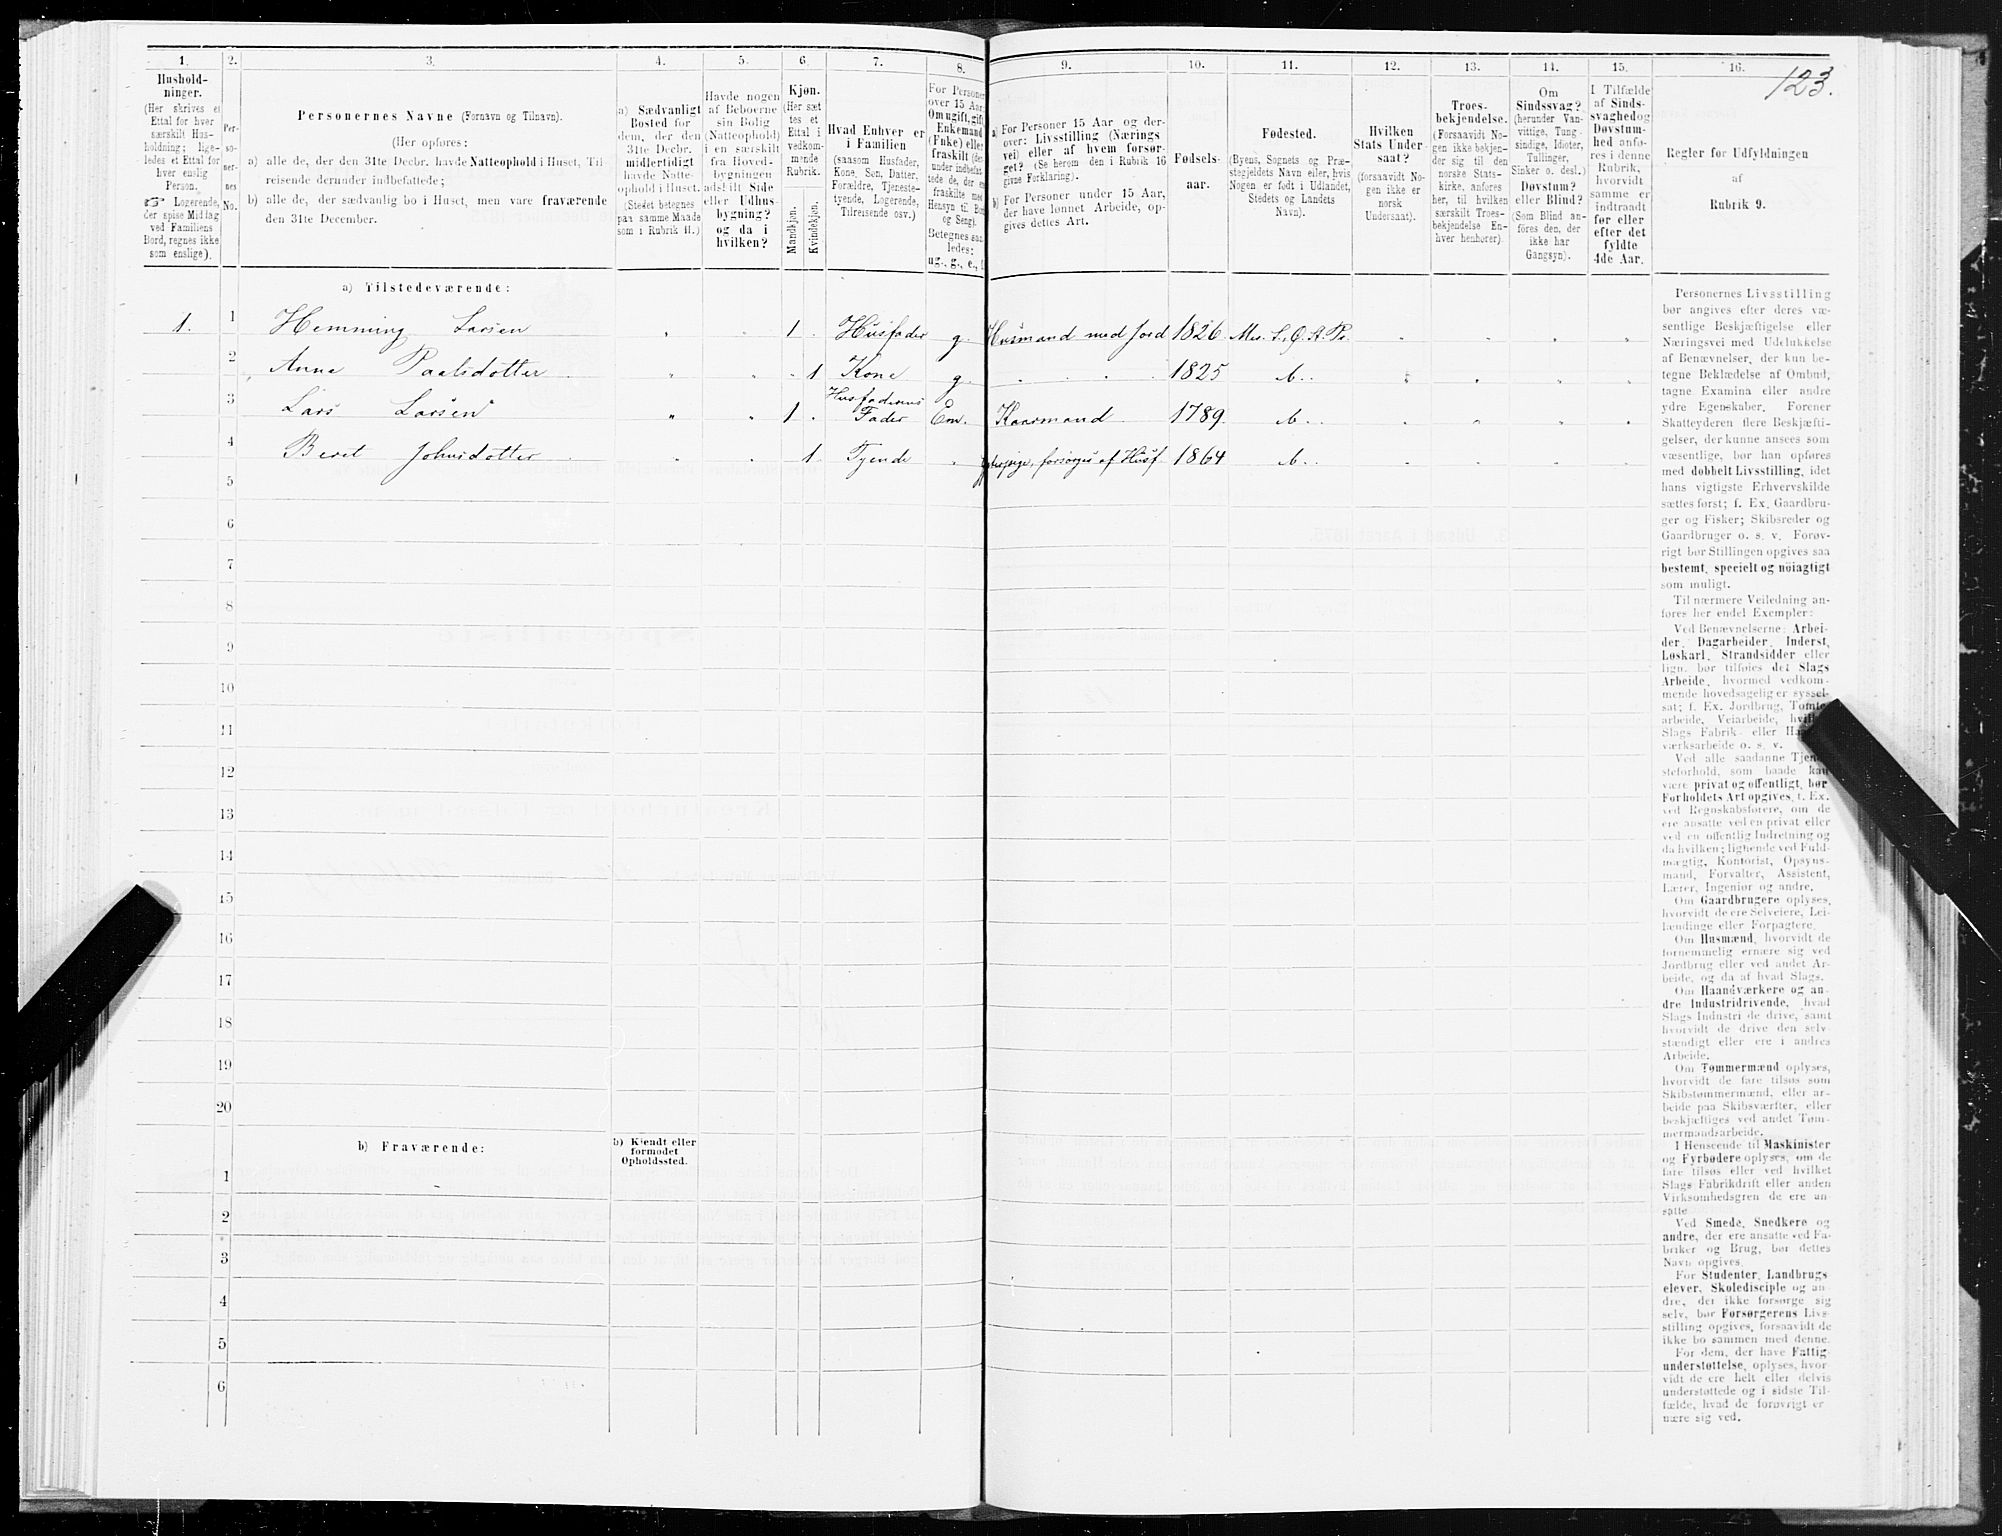 123.
1.
Husholdninger.
(Her skrives et Ettal for hver særskilt Husholdning; ligeledes et Ettal for hver enslig Person.
☞ Logerende, der spise Middag ved Familiens Bord, regnes ikke som enslige).
2.
Personernes No.
3.
Personernes Navne (Fornavn og Tilnavn).
(Her opføres:
a) alle de, der den 31te Decbr. havde Natteophold i Huset, Tilreisende derunder indbefattede;
b) alle de, der sædvanlig bo i Huset, men vare fraværende den 31te December.
4.
a) Sædvanligt Bosted for dem, der den 31te Decbr. midlertidigt havde Natteophold i Huset.
(Stedet betegnes paa samme Maade som i Rubrik 11.)
5.
Havde nogen af Beboerne sin Bolig (Natteophold) i en særskilt fra Hovedbygningen adskilt Side eller Udhusbygning? og da i hvilken?
6.
Kjøn.
(Her sættes et Ettal i vedkommende Rubrik.
Mandkjøn. Kvindekjøn.
7.
Hvad Enhver er i Familien
(saasom Husfader, Kone, Søn, Datter, Forældre, Tjenestetyende, Logerende, Tilreisende osv.)
8.
For Personer over 15 Aar: Om ugift, gift, Enkemand (Enke) eller fraskilt
Betegnes saaledes: ug., g., e.,
9.
a) For Personer 15 Aar og derover: Livsstilling (Næringsvei) eller af hvem forsørget? (Se herom den i Rubrik 16 givne Forklaring).
b) For Personer under 15 Aar, der have lønnet Arbeide, opgives dettes Art.
10.
Fødselsaar.
11.
Fødested.
(Byens, Sognets og Præstegjeldets Navn eller, hvis Nogen er født i Udlandet, Stedets og Landets Navn).
12.
Hvilken Stats Undersaat?
(forsaavidt Nogen ikke er norsk Undersaat).
13.
Troesbekjendelse.
(Forsaavidt Nogen ikke bekjender sig til den norske Statskirke, anføres her, til hvilken særskilt Troesbekjendelse Enhver henhører).
14.
Om Sindssvag?
(herunder Vanvittige, Tungsindige, Idioter, Tullinger, Sinker o. desl.)
Døvstum? eller Blind?
(Som Blind anføres den, der ikke har Gangsyn).
15.
I Tilfælde af Sindssvaghed og Døvstumhed anføres i denne Rubrik, hvorvidt samme er indtraadt før eller efter det fyldte 4de Aar.
16.
Regler for Udfyldningen
af
Rubrik 9.
a) Tilstedeværende:
1. 1 Hemming Larsen " " 1 . Husfader g. Husmand med Jord 1826
2 Anna Paalsdotter " " . 1 Kone g. 1825
3 Lars Larsen " " 1 . Husfaderens Fader Em. Kaarmand 1789
4 Beret Johnsdotter " " 1 Tyende forsørges af Husf. 1864
5
6
7
8
9
10
11
12
13
14
15
16
17
18
19
20
b) Fraværende:
b) Kjendt eller formodet Opholdssted.
1
2
3
4
5
6
Personernes Livsstilling
bør angives efter deres væ-
sentlige Beskjæftigelse eller
Næringsvei med Udelukkelse
af Benævnelser, der kun be-
tegne Beklædelse af Ombud,
tagne Examina eller andre
ydre Egenskaber. Forener
Skatteyderen flere Beskjæfti-
gelser, der kunne ansees som
væsentlige, bør han opføres
med dobbelt Livsstilling, idet
hans vigtigste Erhvervskilde
sættes først; f. Ex. Gaardbru-
ger og Fisker; Skibsreder og
Gaardbruger o. s. v. Forøv-
rigt bør Stillingen opgives saa
bestemt, specielt og nöiagtigt
som muligt.
Til nærmere Veiledning an-
føres her endel Exempler:
Ved Benævnelserne: Arbei-
der, Dagarbeider, Inderst,
Løskarl, Strandsidder eller
lign. bør tilføies det Slags
Arbeide, hvormed vedkom-
mende hovedsagelig er syssel-
sat; f. Ex. Jordbrug, Tomte-
arbeide, Veiarbeide, hvilket
Slags Fabrik- eller Haand-
værksarbeide o. s. v.
Ved alle saadanne Tjene-
steforhold, som baade kan
være privat og offentligt, bør
Forholdets Art opgives, f. Ex.
ved Regnskabsførere, om de
ere ansatte ved en privat eller
ved en offentlig Indretning og
da hvilken; lignende ved Fuld-
mægtig, Kontorist, Opsyns-
mand, Forvalter, Assistent,
Lærer, Ingeniør og andre.
Om Gaardbrugere oplyses,
hvorvidt de ere Selveiere, Lei-
lændinge eller Forpagtere.
Om Husmænd, hvorvidt de
fornemmelig ernære sig ved
Jordbrug eller ved andet Ar-
beide, og da af hvad Slags.
Om Haandværkere og an-
dre Industridrivende, hvad
Slags Industri de drive, samt
hvorvidt de drive den selv-
stændigt eller ere i andres
Arbeide.
Om Tømmermænd oplyses,
hvorvidt de fare tilsøs som
Skibstømmermænd, eller ar-
beide paa Skibsværfter, eller
beskjæftiges ved andet Tøm-
mermandsarbeide.
I Henseende til Maskinister
og Fyrbødere oplyses, om de
fare tilsøs eller ved hvilket
Slags Fabrikdrift eller anden
Virksomhedsgren de ere an-
satte.
Ved Smede, Snedkere og
andre, der ere ansatte ved Fa-
briker og Brug, bør dettes
Navn opgives.
For Studenter, Landbrugs-
elever, Skoledisciple og an-
dre, der ikke forsørge sig
selv, bør Forsørgerens Livs-
stilling opgives, forsaavidt de
ikke bo sammen med denne.
For dem, der have Fattig-
understøttelse, oplyses, hvor-
vidt de ere helt eller delvis
understøttede og i sidste Til-
fælde, hvad de forøvrigt er-
nære sig ved.